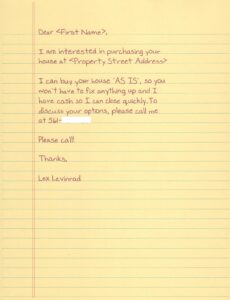 Dear <First Name>,
I am interested in purchasing your
house at <Property Street Address>
I can buy your house 'AS IS', so you
won't have to fix anything up and I
have cash so I can close quickly. To
discuss your options, please call me
at 561-
Please call!
Thanks,
Lex Levinrad